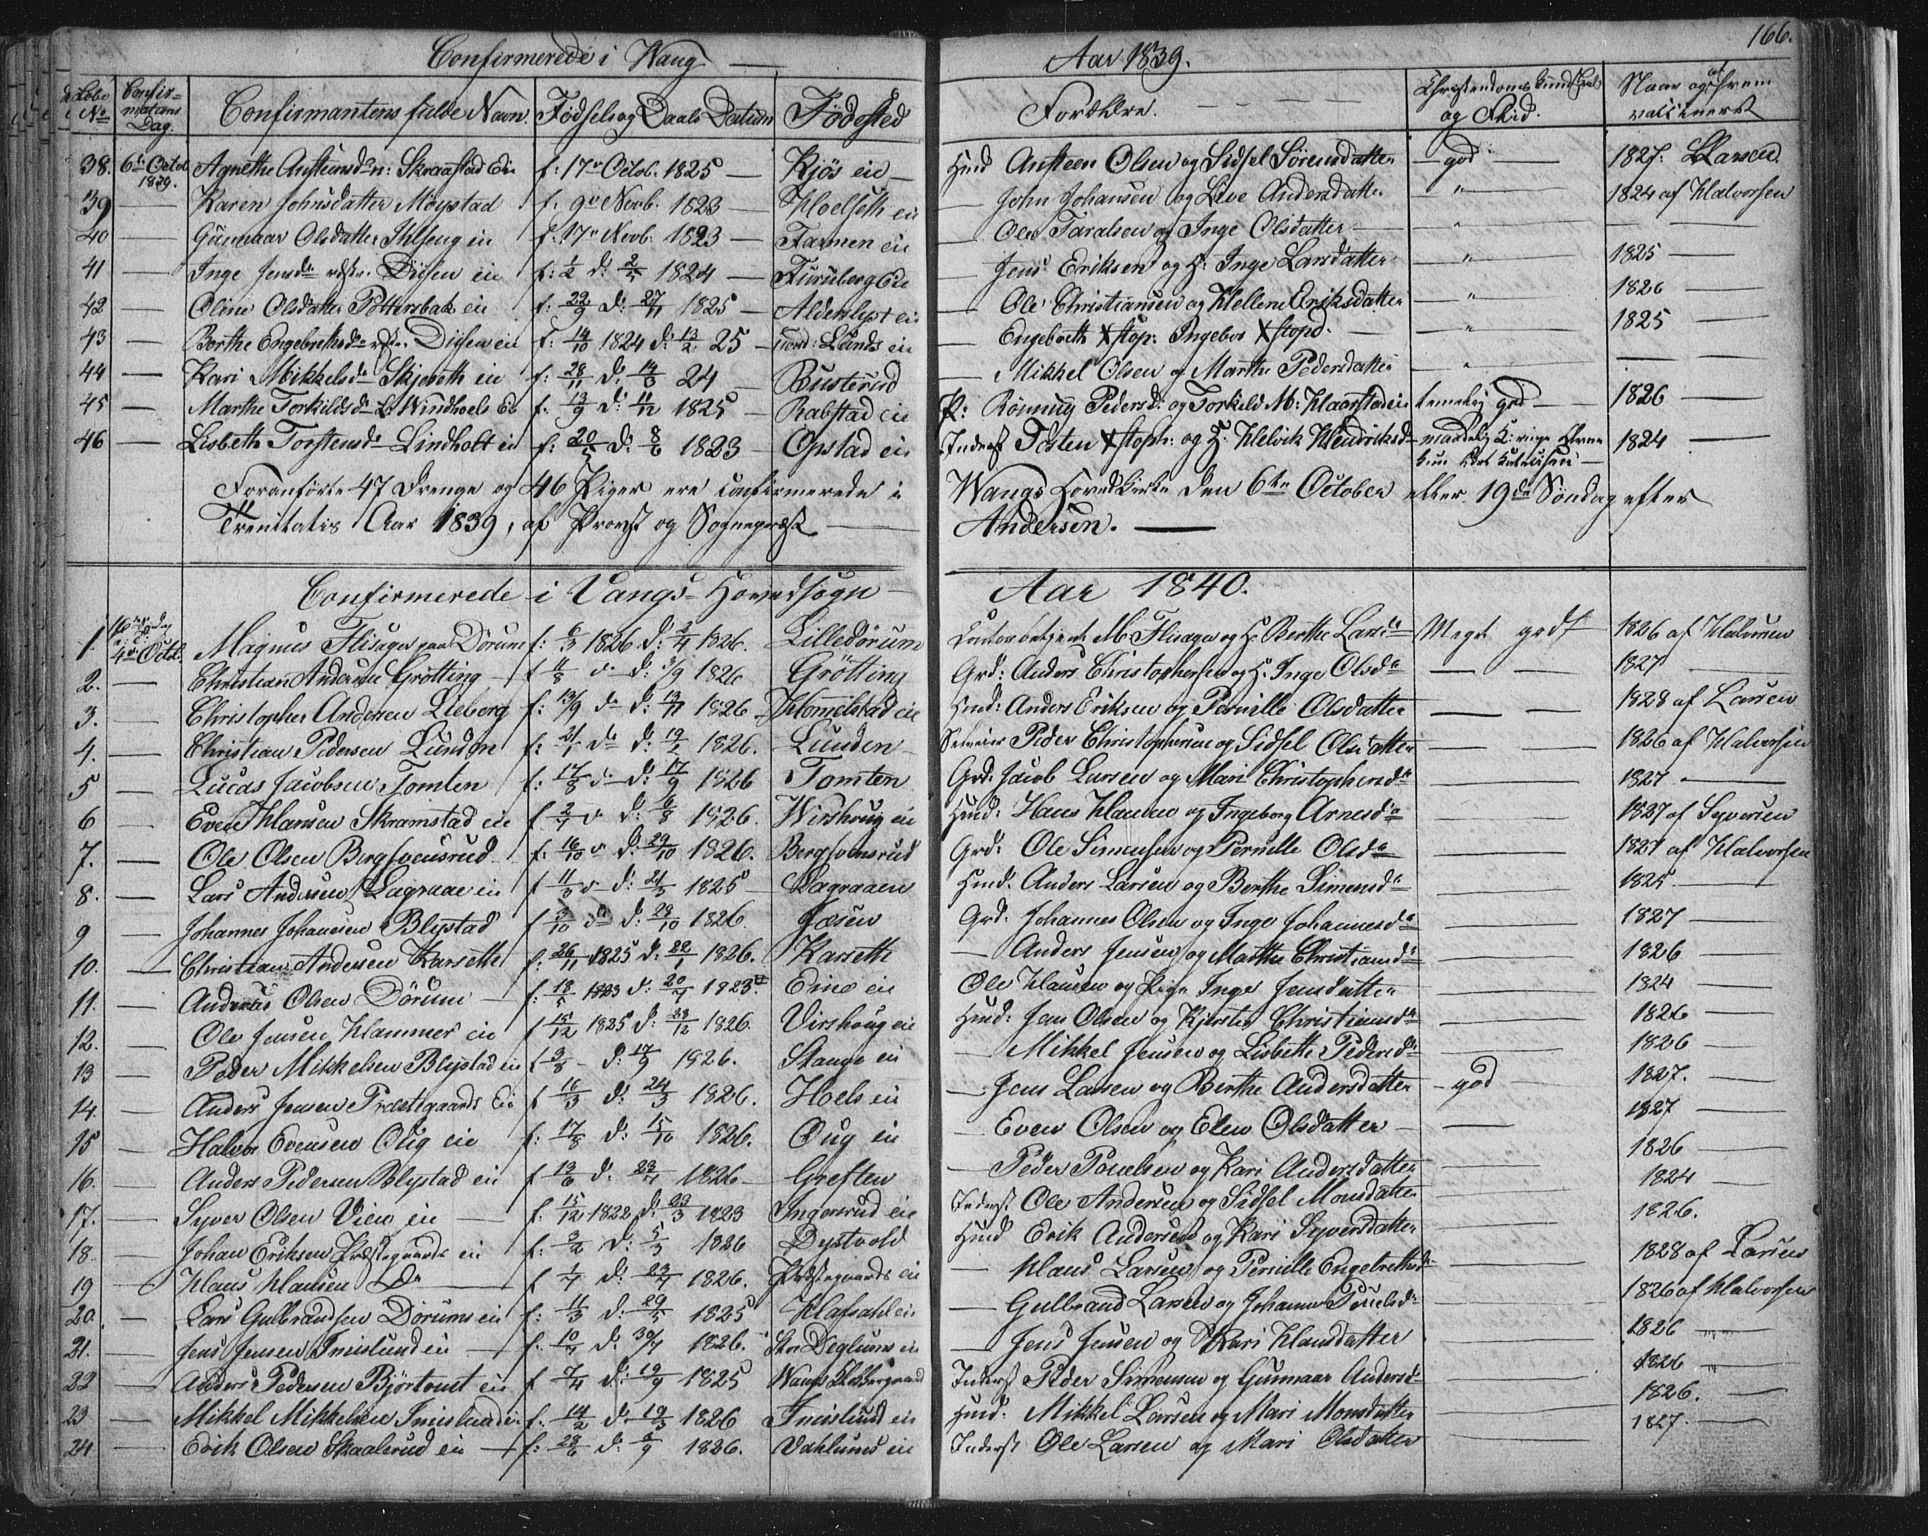 166.
Confirmerede i Wang — Aar 1839.
Løbe No. Confirmations Dag. Confirmantens fulde Navn. Fødsels og Daabs Datum Fødested Forældre. Christendoms Kundskab og Flid. Naar og af hvem vaccineret
38. 6te Octob. 1839. Agnethe Anstensd. Skraastad Ei f: 17de Octob. 1825 — Kjøs eie — Huusm. Ansteen Olsen og Sidsel Sørensdatter — god — 1827. Larsen
39 — Karen Johnsdatter Møystad f. 9de Novb. 1823 — Kloelseth eie — John Johansen og Live Andersdatter — " — 1824 af Halvorsen
40 — Gunnaar Olsdatter Ihlseng eie f. 17de Novb. 1823 — Farmen eie — Ole Taralsen og Inge Olsdatter — "
41 — Inge Jensd. Disen eie f: 1/2 d: 2/5 1824 — Furuberg Eie — Jens Eriksen og H. Inge Larsdatter — " — 1825 —
42 — Oline Olsdatter Pottersbak eie f: 22/9 d: 27/11 1825 — Alderslyst eie — Ole Christiansen og Hellene Eriksdatter — " — 1826 —
43 — Berthe Engebrethsd. Disen eie f: 14/10 1824 d: 13/2 25 — Lunds eie — Engebreth Xstop. Ingebor Xstopd. — " — 1825 —
44 — Kari Mikkelsd. Skjeseth eie f: 28/11 d: 14/3 24 — Busterud — Mikkel Olsen og Marthe Pedersdatter — "
45 — Marthe Torkildsd. Windhoels Ei f. 13/9 d: 11/12 1825 — Rabstad eie P: Rønnug Pedersd. og Torkild M: Kaarstadeie temelig god — 1826 —
46 — Lisbeth Torstensd. Lindholt eie f: 20/5 d: 8/6 1823 — Opstad eie Inderst Tosten Xstoph. og H. Helvik Hendriksd. maadelig K: ringe Evne 1824 —
Foranførte 47 Drenge og 46 Piger ere confirmerede i Wangs Hovedkirke den 6te October eller 19de Søndag efter
Trinitatis Aar 1839, af Provst og Sognepræst — Andersen. —
Confirmerede i Vangs Hovedsogn — Aar 1840.
1. 4de Octb. Magnus Flisager paa Dørum f: 6/3 1826 d: 2/4 1826. Lilledørum M. Flisager og H. Berthe Larsd. Meget godt 1826 af Halvorsen
2. — Christian Andersen Grøtting — f 11/8 d: 3/9 1826 Grøtting Grd: Anders Christophersen og H. Inge Olsd. — — 1827 —
3. — Christopher Andersen Lieberg f: 13/9 d: 13/11 1826 — Homelstad eie Huusm: Anders Eriksen og Pernille Olsdatter — — 1828 af Larsen
4. — Christian Pedersen Lunden f: 21/1 d: 19/2 1826. Lunden Selveier Peder Christophersen og Sidsel Olsdatter — — 1826 af Halvorsen
5 — Lucas Jacobsen Tomten f: 17/8 d: 17/9 1826 Tomten Grd. Jacob Larsen og Mari Christophersd. — 1827 —
6 — Even Hansen Skramstad eie f 2/7 d: 6/8 1826. Wirshoug eie Huusm: Hans Hansen og Ingeborg Arnesd. — 1827 af Syversen
7. — Ole Olsen Bergsvensrud f: 16/10 d: 29/10 1826. Bergsvensrud Grd: Ole Simensen og Pernille Olsd. — 1827 af Halvorsen
8. — Lars Andersen Lagraae eie f 11/3 d: 21/3 1825 — Lagraaen Huusm. Anders Larsen og Berthe Simensd. — 1825 —
9 — Johannes Johannesen Blystad f 3/10 d: 29/10 1826. Jøsen Grd. Johannes Olsen og Inge Johannesd. — 1827 —
10. — Christian Andersen Karseth f: 26/11 1825 d: 22/1 1826. Karseth — Anders Jensen og Marthe Christiansd. — 1826 —
11. — Andreas Olsen Dørum — f: 18/5 1823 d: 20/7 1823. Eine eie Ole Hansen og Pige Inge Jensdatter — 1824 —
12. — Ole Jensen Hammer eie f 15/12 1825 d: 28/12 1826. Virshoug eie Huusm: Jens Olsen og Kjersti Christiansd. — 1826 —
13 — Peder Mikkelsen Blystad eie f 3/8 — d: 17/9 1826. Stange eie — Mikkel Jensen og Lisbeth Pedersd. — 1826 —
14. — Anders Jensen Præstegaards Ei f 16/3 d: 24/3 1826. Hoels eie — Jens Larsen og Berthe Andersdatter — god 1827. —
15 — Halvor Evensen Olig eie f: 17/8 d: 15/10 1826. Oug eie — Even Olsen og Elen Olsdatter — 1827 —
16. — Anders Pedersen Blystad eie f 13/6 d: 23/7 1826 — Greften — Peder Poulsen og Kari Andersdatter 1826 —
17. — Syver Olsen Vien eie — f: 15/12 1822 d: 23/3 1823 Ingersrud eie Inderst Ole Andersen og Sidsel Monsdatter 1824 —
18. — Johan Eriksen Præstegaards eie f: 3/2 d: 5/3 1826 Dystvold Huusm Erik Andersen og Kari Syversdatter — 1826.
19 — Hans Hansen Do — f 1/7 d: 23/7 1826. Præstegaards eie — Hans Larsen og Pernille Engebrethsd. — 1828 af Larsen
20. — Lars Gulbrandsen Dørums eie f: 11/3 d: 29/5 1825 Hafsahl eie — Gulbrand Larsen og Johanne Poulsd. — 1826 af Halvorsen
21. — Jens Jensen Imislund eie — f: 10/7 d: 30/7 1826. Stor Deglums eie — Jens Jensen og Kari Hansdatter — 1826 —
22 — Anders Pedersen Bjørtomt eie f 7/4 d: 19/9 1825 Wangs Inderst Peder Simensen og Gunnaar Andersd. — 1826 —
23 — Mikkel Mikkelsen Imislund eie f: 14/2 d: 19/3 1826 Imislund eie Huusm: Mikkel Larsen og Mari Monsdatter — 1826. —
24 — Erik Olsen Skaalerud eie — f: 28/6 d: 3/9 1826. Vahlunds eie Inderst Ole Larsen og Mari Olsdatter — 1827. —